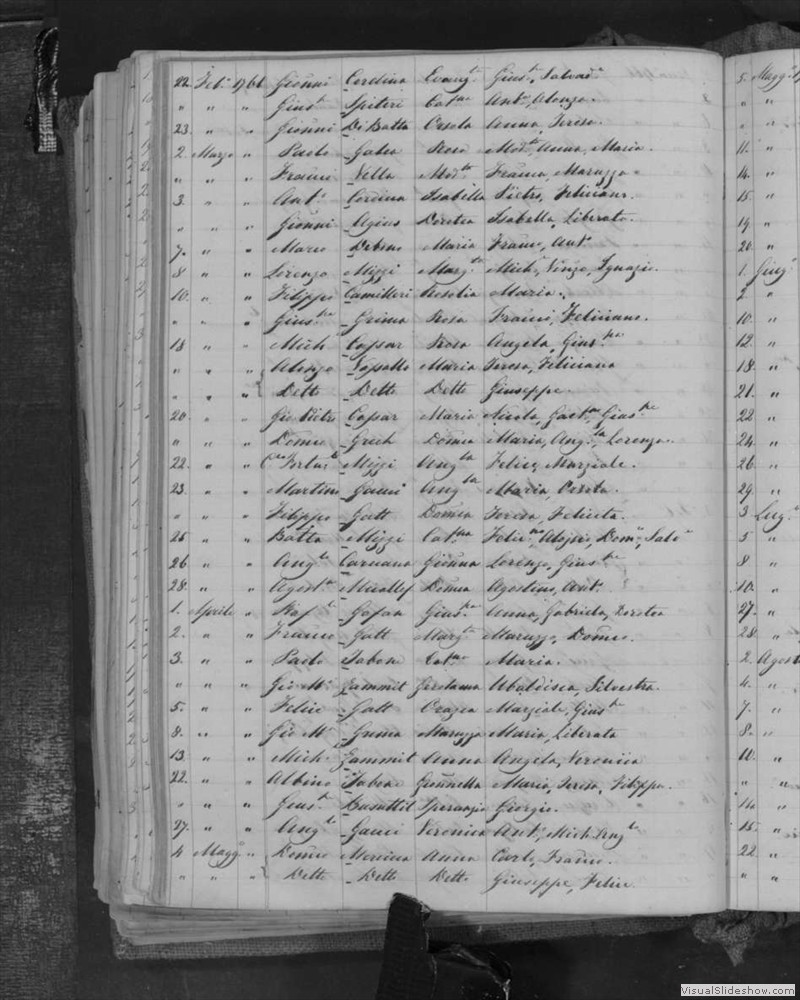 22. Feb. 1766 Gionni Cordina Evang.ta Gius.a, Salvad.e
" " " Gius.e Spiteri Cat.na Ant.o, Alonzo.
23. " " Gionni DiBatta Orsola Anna, Teresa.
2. Marzo " Paolo Galea Rosa Mod.ta, Anna, Maria.
" " " Franco Vella Mod.ta Franca, Maruzza.
3. " " Ant.o Cordina Isabella Pietro, Feliciano.
" " Gionni Agius Dorotea Isabella, Liberata.
7. " " Marco Debono Maria Franco, Ant.o
8 " " Lorenzo Mizzi Marg.ta Mich.e, Vinzo, Ignazio.
10. " " Filippo Camilleri Rosolia Maria.
" " " Gius.ppe Grima Rosa Franco, Feliciano.
18 " " Mich. Caſsar Rosa Angela, Gius.ppa
" " " Alonzo Maria Teresa, Feliciana
" " " Detto Detto Detto Giuseppe.
20. " " Gio Pietro Caſsar Maria Nicola, Gaet.no, Gius.ppe
" " " Domco Grech Domca Maria, Ang.la, Lorenzo.
22. " " Mizzi Ang.la Felice, Marziale.
23. " " Martino Gauci Ang.la Maria,
" " " Filippo Gatt Domca Teresa, Felicita.
25 " " Batta Mizzi Cat.rna Dom.co, Salv.e
26 " " Ang.lo Caruana Gionna Lorenzo, Gius.ppe
28. " " Agost.o Micallef Domca Agostino, Ant.o
1. Aprile " Raf.e Gius.ppa Anna, Gabriele, Dorotea
2. " " Franco Gatt Marg.ta Maruzza, Domco.
3. " " Paolo Tabone Cat.na Maria.
" " " Gio M. Zammit Gerolama Ubaldisca, Silvestra.
5. " " Felice Gatt Orazia Marziale, Gius.ppe
8. " " Gio M. Grima Maruzza Maria, Liberata
13. " " Mich. Zammit Anna Angela, Veronica
22. " " Albino Tabone Gionnella Maria, Teresa, Filippa.
" " " Gius.e Busuttil Speranza Giorgio.
27. " " Ang.lo Gauci Veronica Ant.o, Mich.Ang.lo
4 Magg.o " Domco Anna Carlo, Franco.
" " " Detto Detto Detto Giuseppe, Felice
5. Magg.o
" "
" "
11. "
14. "
15. "
19. "
20. "
1. Giug.o
2 "
10. "
12. "
18. "
21. "
22 "
24. "
26. "
29. "
3 Lug.o
5 "
8 "
10. "
27. "
28. "
2. Agost
4. "
7. "
8. "
10. "
" "
14. "
15. "
22. "
" "
VisualSlideshow.com